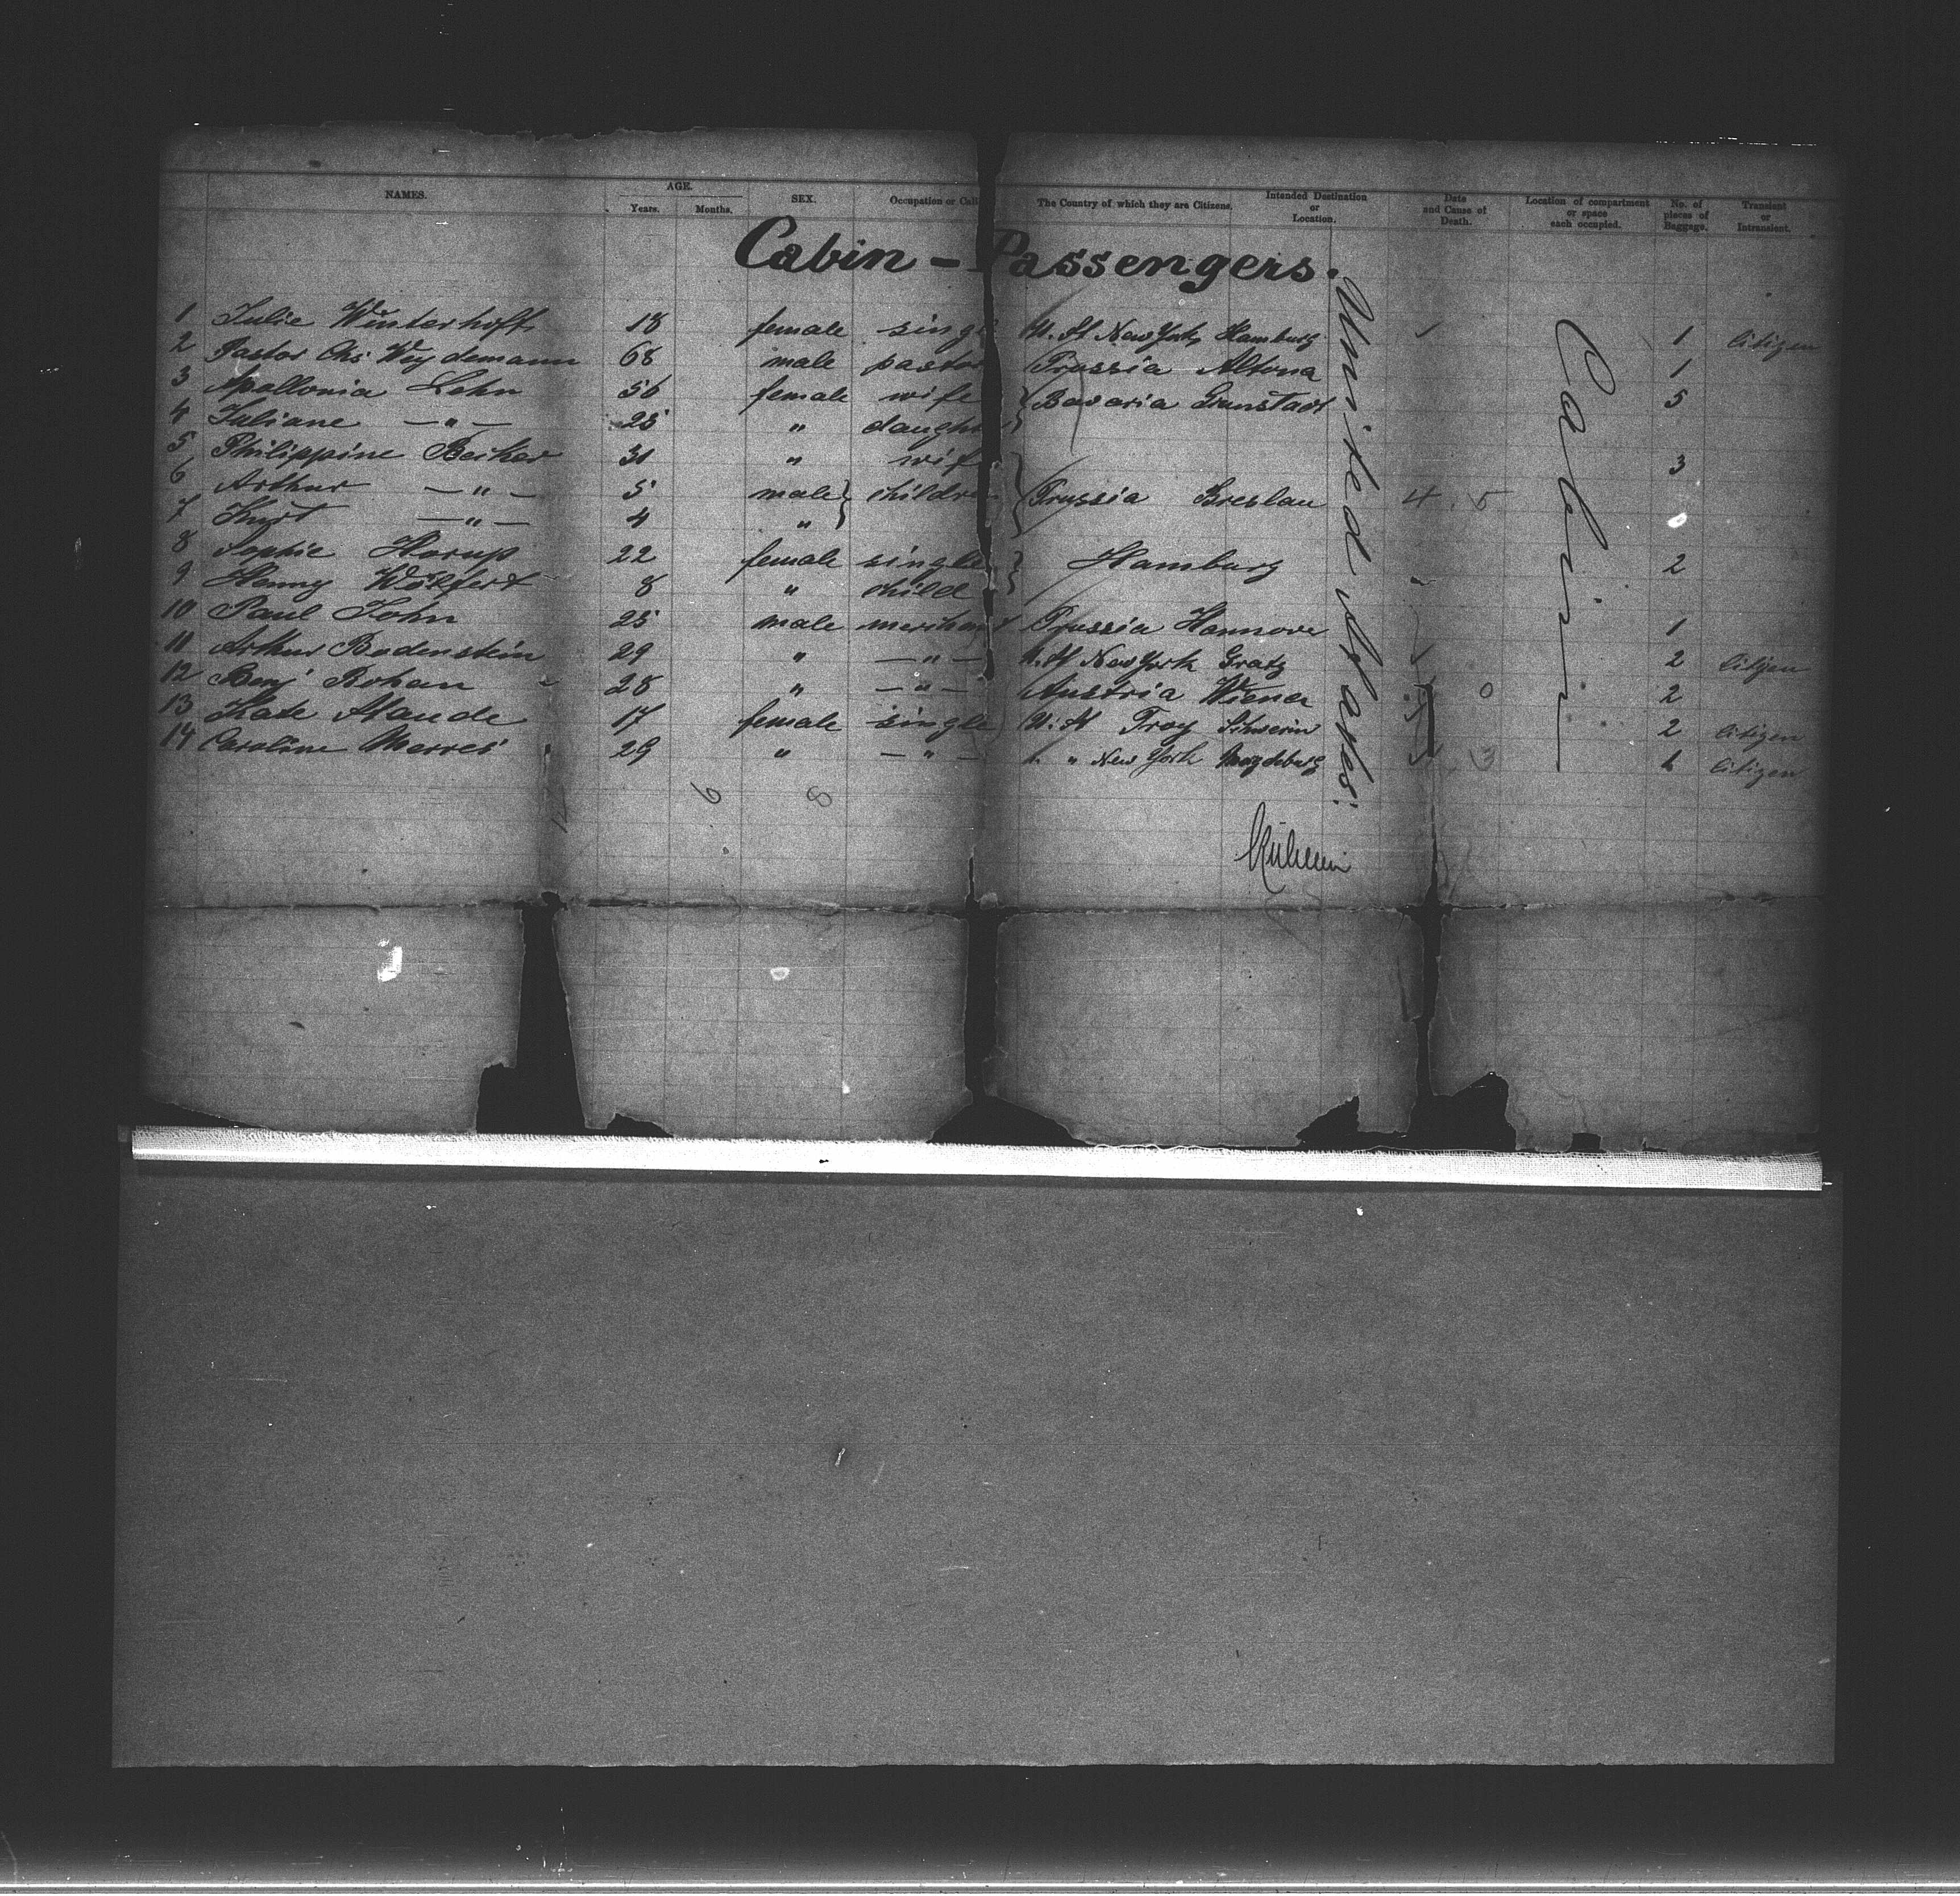 NAMES. AGE. Years. Months. SEX. Occupation or Call The Country of which they are Citizens. Intended Destination or Location. Date and Cause of Death. Location of compartment or space each occupied. No. of pieces of Baggage. Transient or Intransient.
Cabin - Passengers.
1 Julie Winterhoff 18 female singl U. St New York Hamburg 1 Citizen
2 Pastor Chs Weydemann 68 male pastor Prussia Altona 1
3 Apollonia Lehn 56 female wife Bavaria Grunstadt 5
4 Juliane —"— 25 " daught
5 Philippine Becker 31 " wife 3
6 Arthur —"— 5 male children Prussia Breslau 4. 5
7 Kurt —"— 4 "
8 Sophie Horup 22 female single Hamburg 2
9 Hanny Wölfert 8 " child
10 Paul John 25 male merchant Prussia Hannover 1
11 Arthur Bodenstein 29 " —"— U. St New York Gratz 2 Citizen
12 Benj Rohan 28 " —"— Austria Wiena 0 2
13 Kate Staude 17 female single U. St Troy Schwerin 2 Citizen
14 Caroline Merres 29 " —"— " New York Magdeburg 3 1 Citizen
United States.
Cabin
6 8